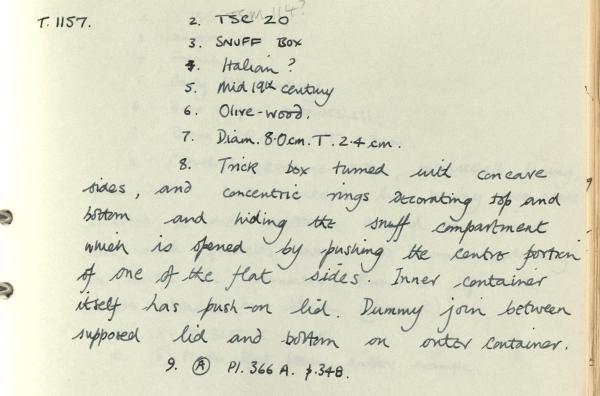 TSM 114?
T. 1157. 2. TSC 20
3. SNUFF BOX
4. Italian?
5. Mid 19th century
6. Olive-wood.
7. Diam. 8.0cm. T. 2.4 cm.
8. Trick box turned with concave
sides, and concentric rings decorating top and
bottom and hiding the snuff compartment
which is opened by pushing the centre portion
of one of the flat sides. Inner container
itself has push-on lid. Dummy join between
supposed lid and bottom on outer container.
9. Ⓐ Pl. 366 A. p. 348.